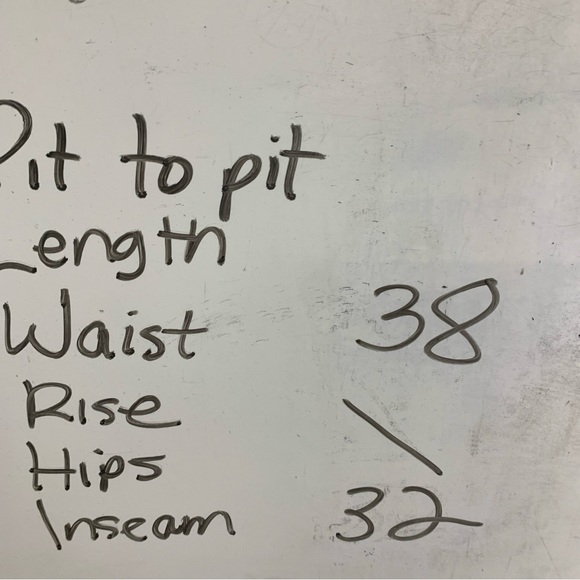 Pit to pit
Length
Waist 38
Rise \
Hips
Inseam 32